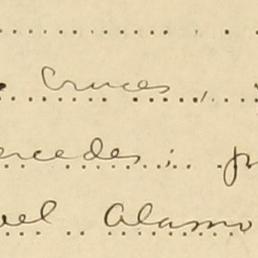 Cruces,
ercedes;
el Alamo